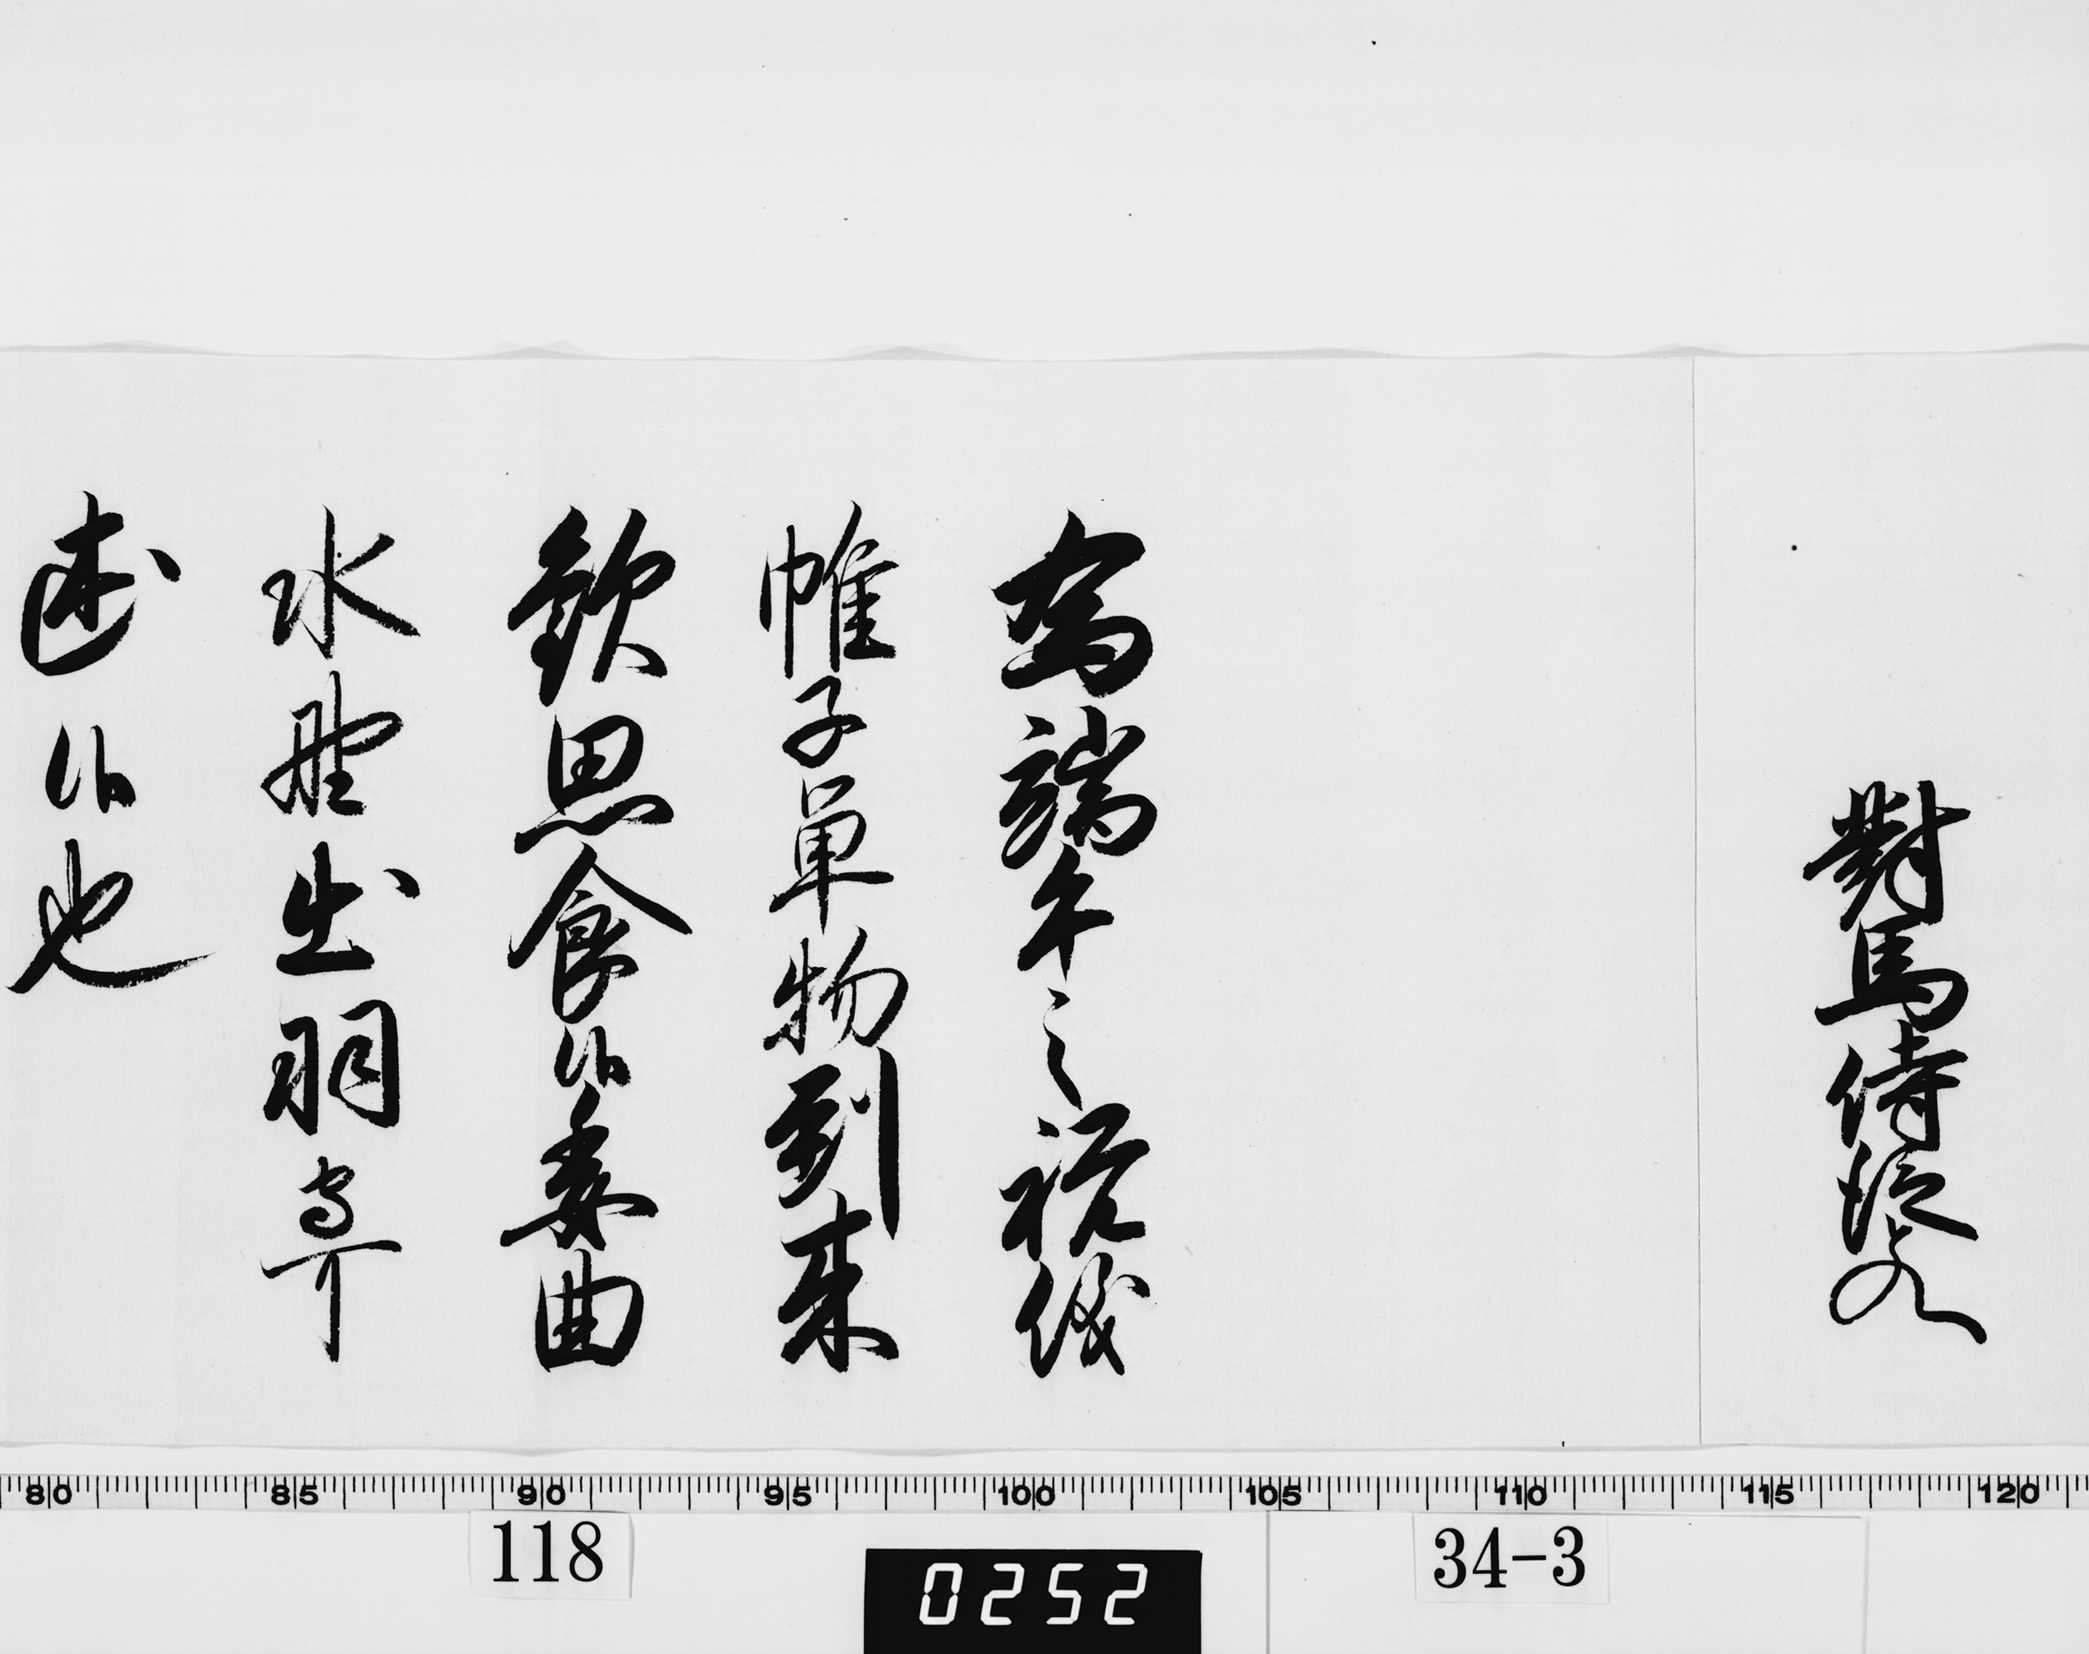 對馬侍従殿
為端午之祝儀
帷子單物到来
歓思食候委曲
水野出羽守可
述候也
80 85 90 95 100 105 110 115 120
118
0252
34-3